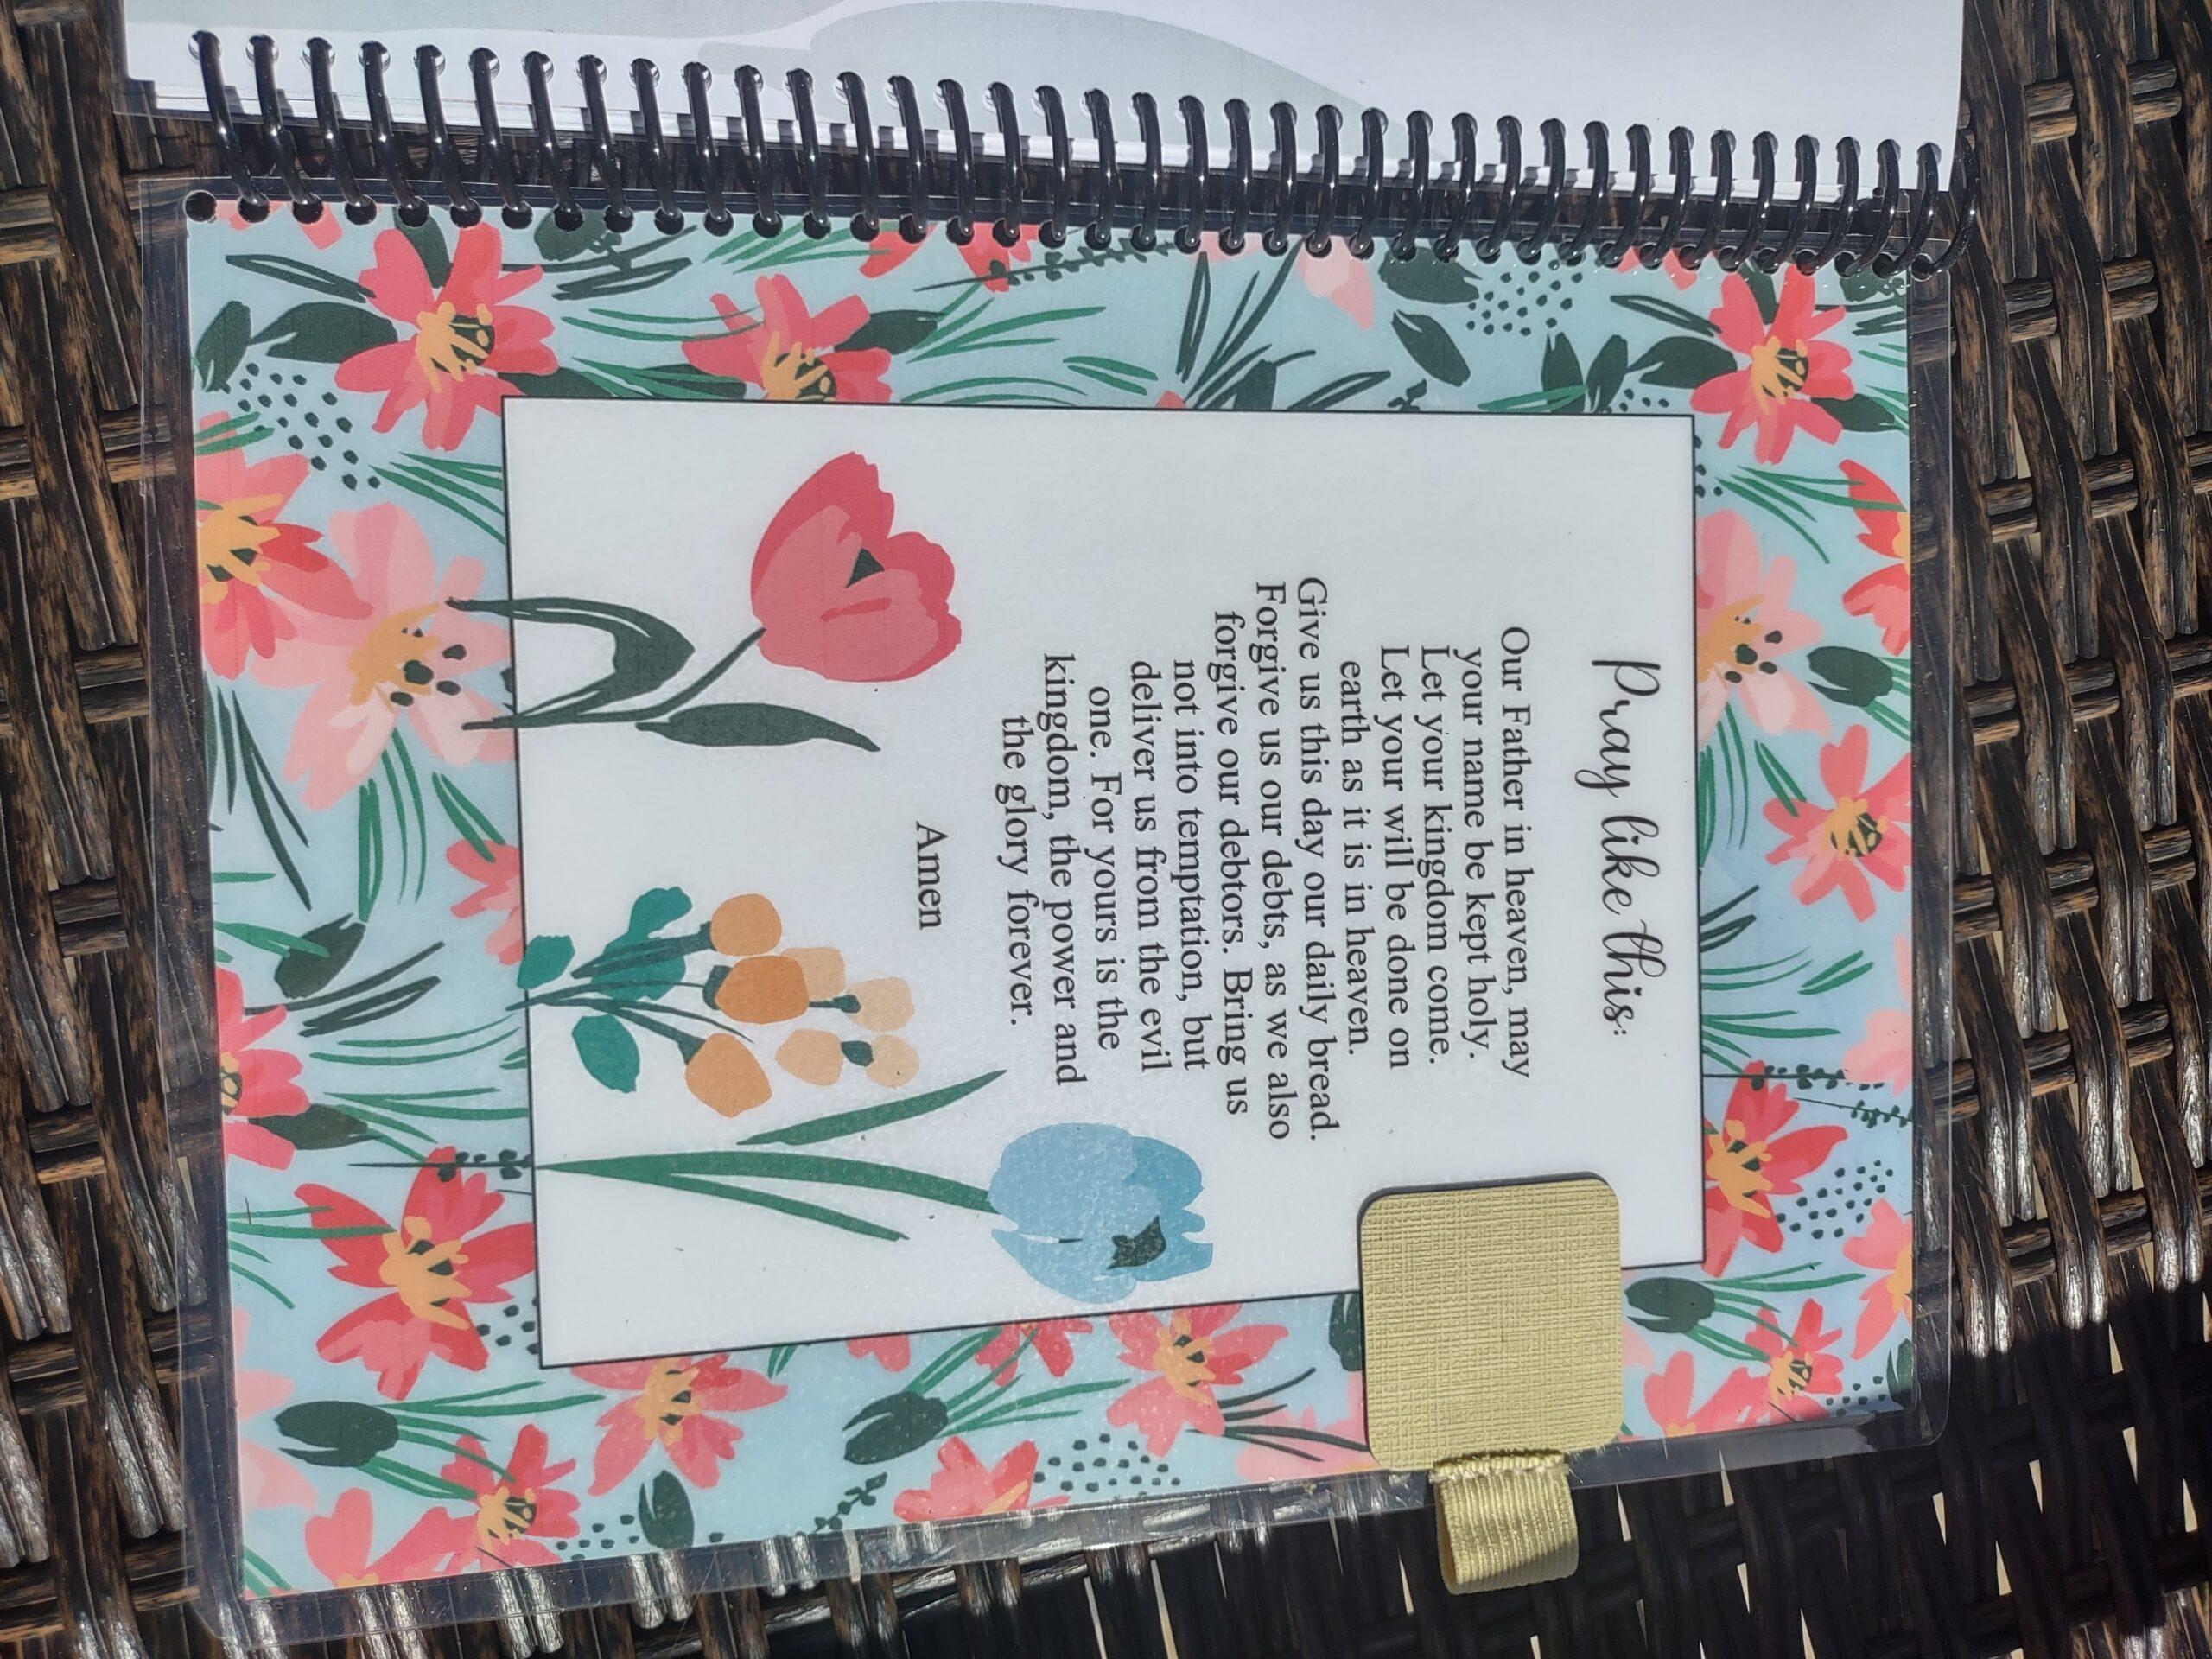 Pray like this:
Our Father in heaven, may
your name be kept holy.
Let your kingdom come.
Let your will be done on
earth as it is in heaven.
Give us this day our daily bread.
Forgive us our debts, as we also
forgive our debtors. Bring us
not into temptation, but
deliver us from the evil
one. For yours is the
kingdom, the power and
the glory forever.
Amen